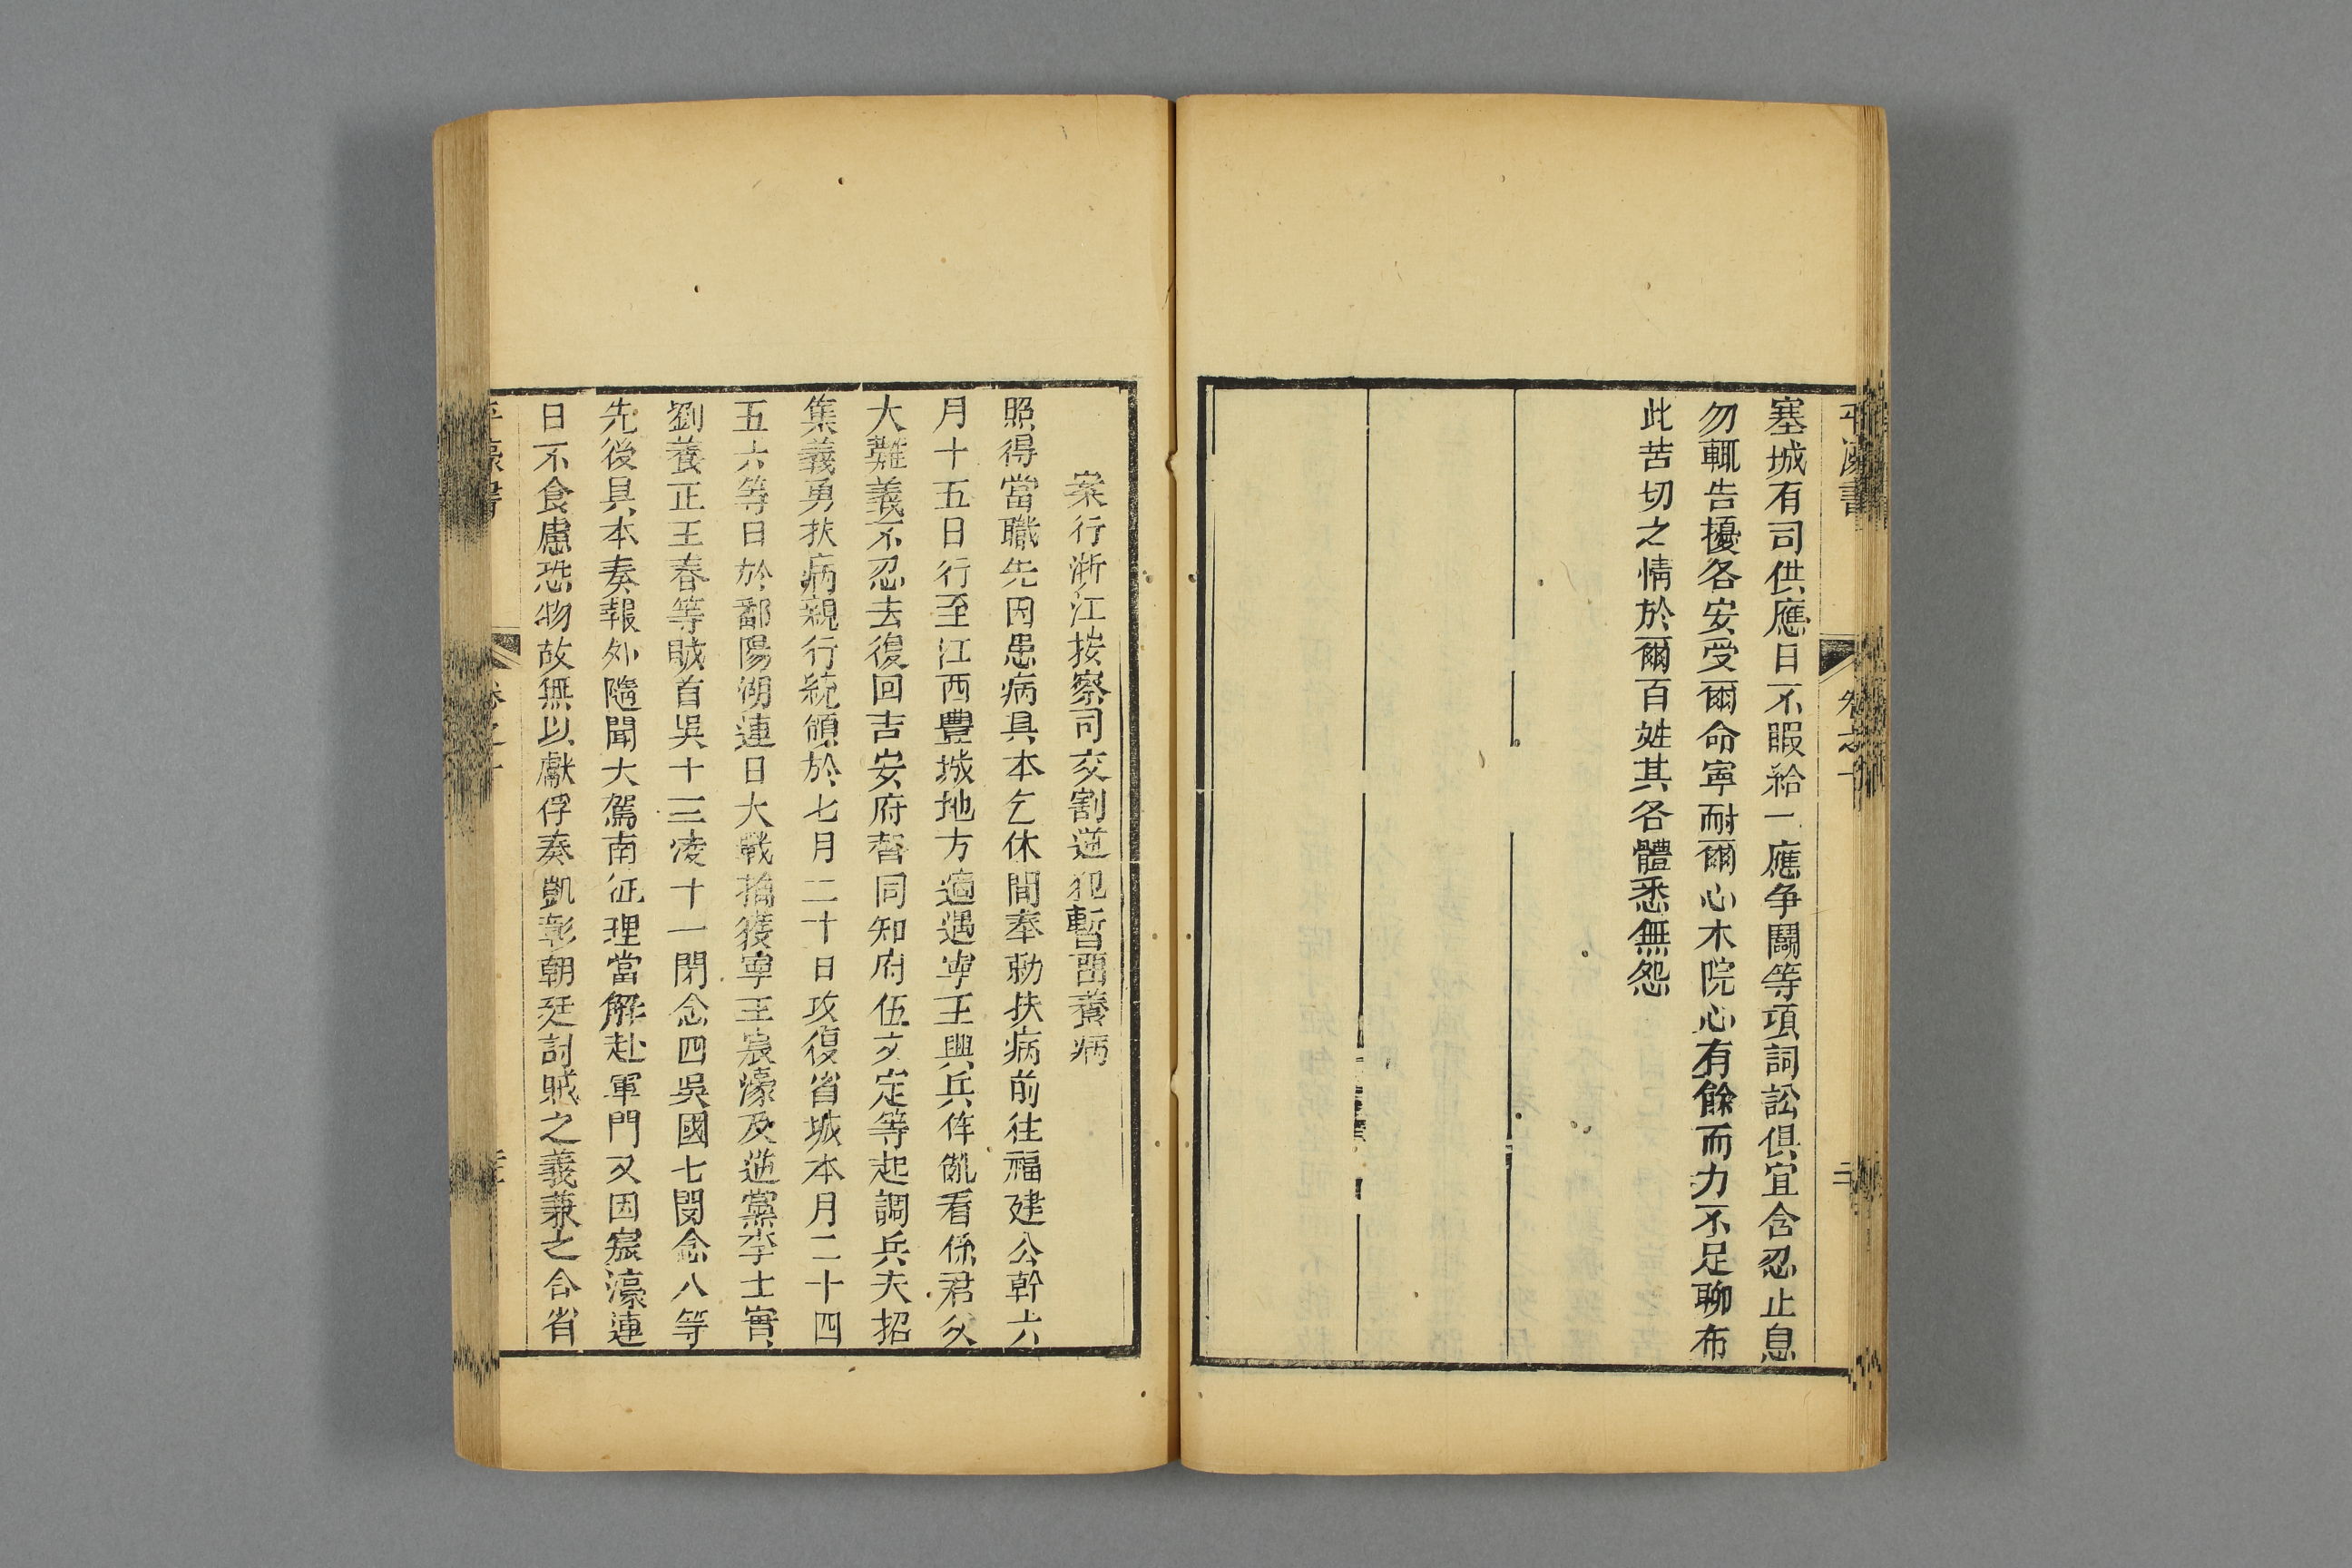 平濠書
卷之十
塞城有司供應日不暇給一應争鬭等項詞訟俱宜含忍止息
勿輒告擾各安受爾命寧耐爾心木院心有餘而力不足聊布
此苦切之情於爾百姓其各體悉無怨
案行浙江按察司交割逆犯暫畱養病
照得當職先因患病具本乞休間奉勅扶病前往福建公幹六
月十五日行至江西豐城地方適遇寧王興兵作亂看係君父
大難義不忍去復回吉安府督同知府伍文定等起調兵夫招
集義勇扶病親行統領於七月二十日攻復省城本月二十四
五六等日於鄱陽湖連日大戰擒獲寧王宸濠及逆黨李士實
劉養正王春等賊首吳十三凌十一閔念四吳國七閔念八等
先後具本奏報外隨聞大駕南征理當解赴軍門又因宸濠連
日不食慮恐物故無以獻俘奏凱彰朝廷討賊之義兼之合省
平濠書
卷之十